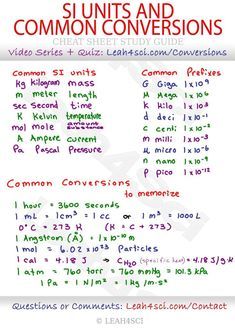 SI UNITS AND
COMMON CONVERSIONS
CHEAT SHEET STUDY GUIDE
Video Series + Quiz: Leah4sci.com/Conversions
Common SI units
Kg Kilogram mass
m meter length
sec Second time
K Kelvin temperature
mol mole amount substance
A Ampere current
Pa Pascal Pressure
Common Prefixes
G Giga 1x10⁹
M Mega 1x10⁶
K Kilo 1x10³
d deci 1x10⁻¹
c centi 1x10⁻²
m milli 1x10⁻³
μ micro 1x10⁻⁶
n nano 1x10⁻⁹
p pico 1x10⁻¹²
Common Conversions
to memorize
1 hour = 3600 seconds
1 mL = 1cm³ = 1 cc or 1 m³ = 1000 L
0°C = 273 K (K = C + 273)
1 Angstrom (Å) = 1 x 10⁻¹⁰ m
1 mol = 6.02 x 10²³ Particles
1 cal = 4.18 J → C H₂O (specific heat) = 4.18 J/g·K
1 atm = 760 torr = 760 mmHg = 101.3 kPa
1 Pa = 1 N/m² = 1 kg/m·s²
Questions or Comments: Leah4sci.com/Contact
© LEAH4SCI